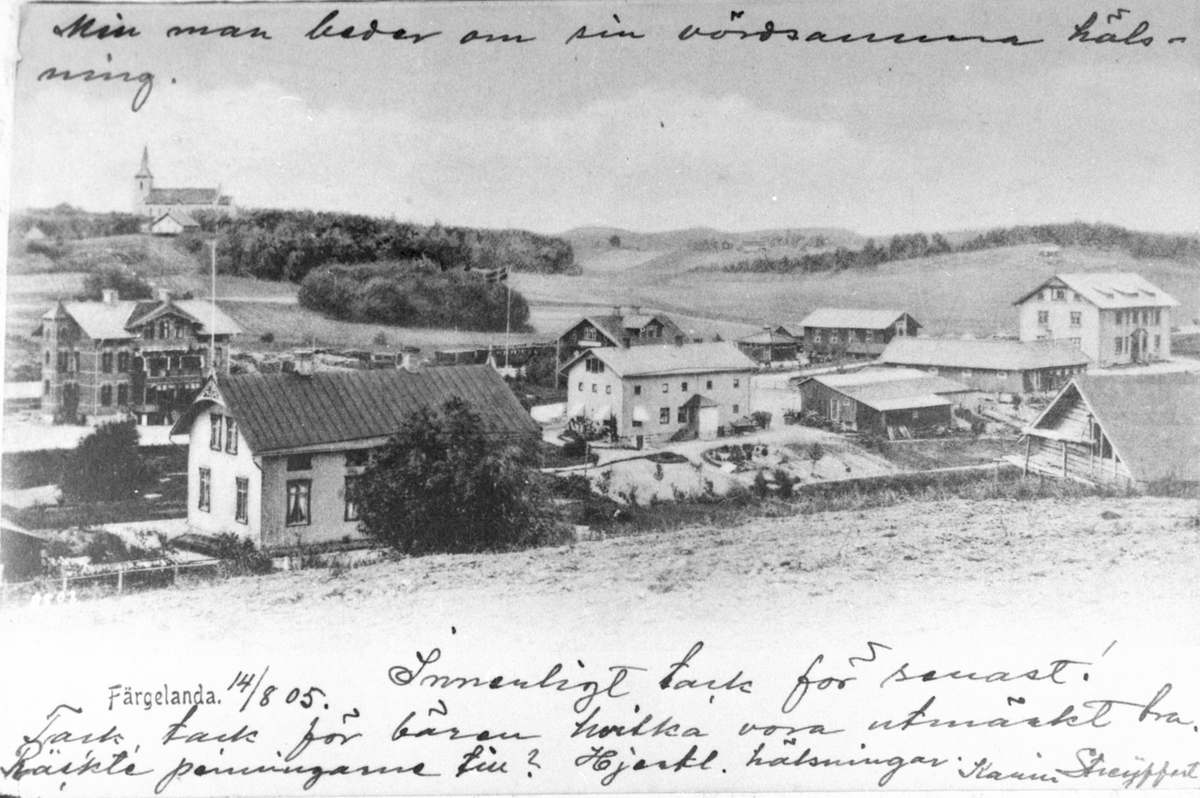 Min man beder om sin vördsamma häls-
ning.
Färgelanda. 14/8 05.
Innerligt tack för senast!
Tack tack för bären hvilka voro utmärkt bra.
Räckte penningarne till? Hjertl. hälsningar
Karin Streyffert